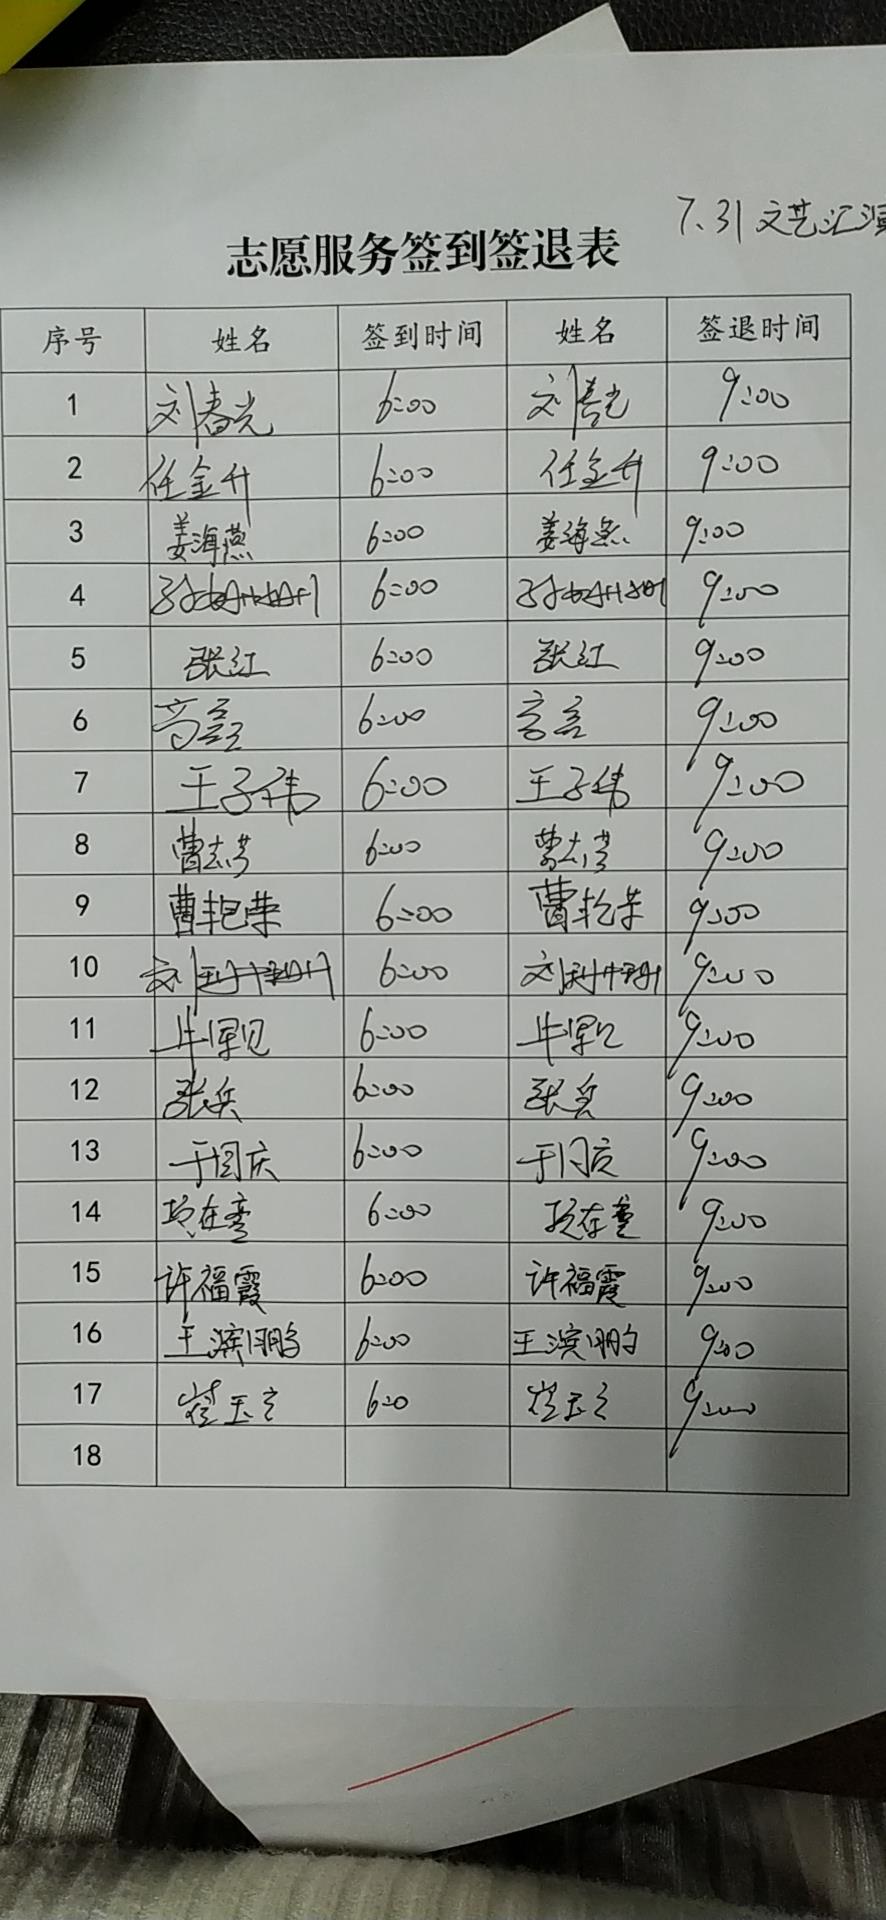 7.31 文艺汇演
志愿服务签到签退表
序号 姓名 签到时间 姓名 签退时间
1 刘春光 6:00 刘春光 9:00
2 任金升 6:00 任金升 9:00
3 姜海燕 6:00 姜海燕 9:00
4 6:00 9:00
5 张红 6:00 张红 9:00
6 6:00 9:00
7 王子伟 6:00 王子伟 9:00
8 曹志芳 6:00 曹志芳 9:00
9 曹艳荣 6:00 曹艳荣 9:00
10 刘 6:00 刘 9:00
11 6:00 9:00
12 张兵 6:00 张兵 9:00
13 于国庆 6:00 于国庆 9:00
14 6:00 9:00
15 许福霞 6:00 许福霞 9:00
16 王滨鹏 6:00 王滨鹏 9:00
17 崔玉 6:0 崔玉 9:00
18